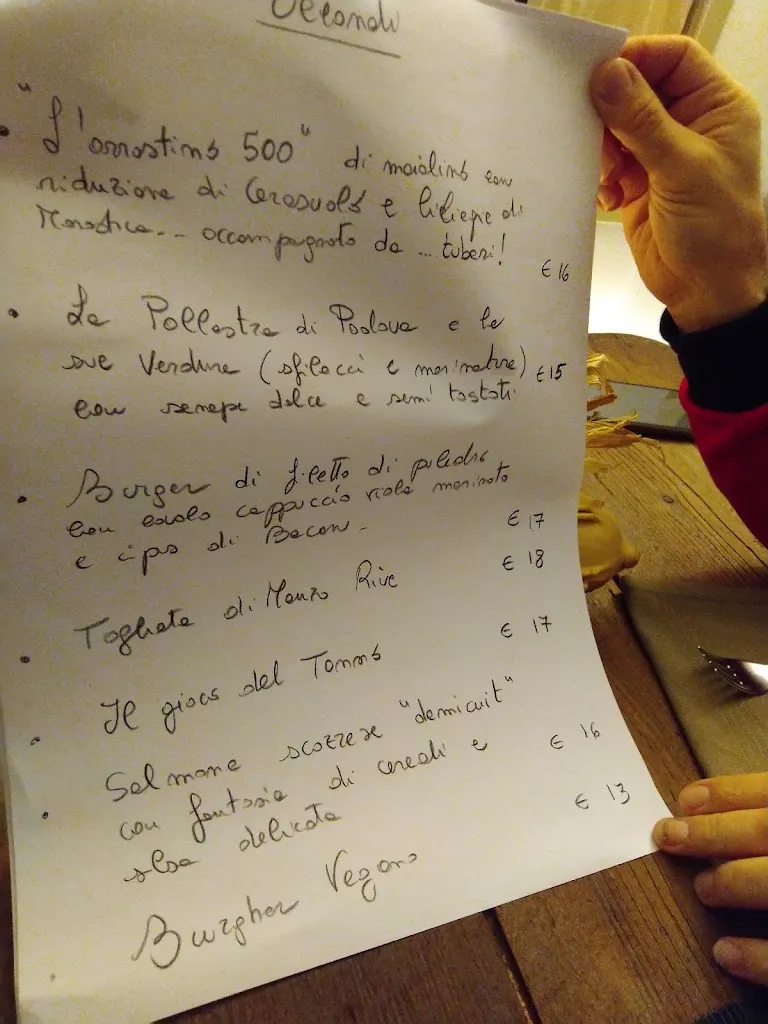 Secondi
• "L'arrostino 500" di maialino con
riduzione di Cerasuolo e Ciliegie di
Marostica... accompagnato da ... tuberi!
€ 16
• La Pollastra di Padova e le
sue Verdure (sfilacci e marinature) € 15
con senape dolce e semi tostati.
• Burger di filetto di puledro
con cavolo cappuccio viola marinato
e cips di Bacon.
€ 17
• Tagliata di Manzo Rive
€ 18
• Il gioco del Tonno
€ 17
• Salmone scozzese "demicuit"
con fantasia di cereali e
salsa delicata
€ 16
• Burgher Vegano
€ 13